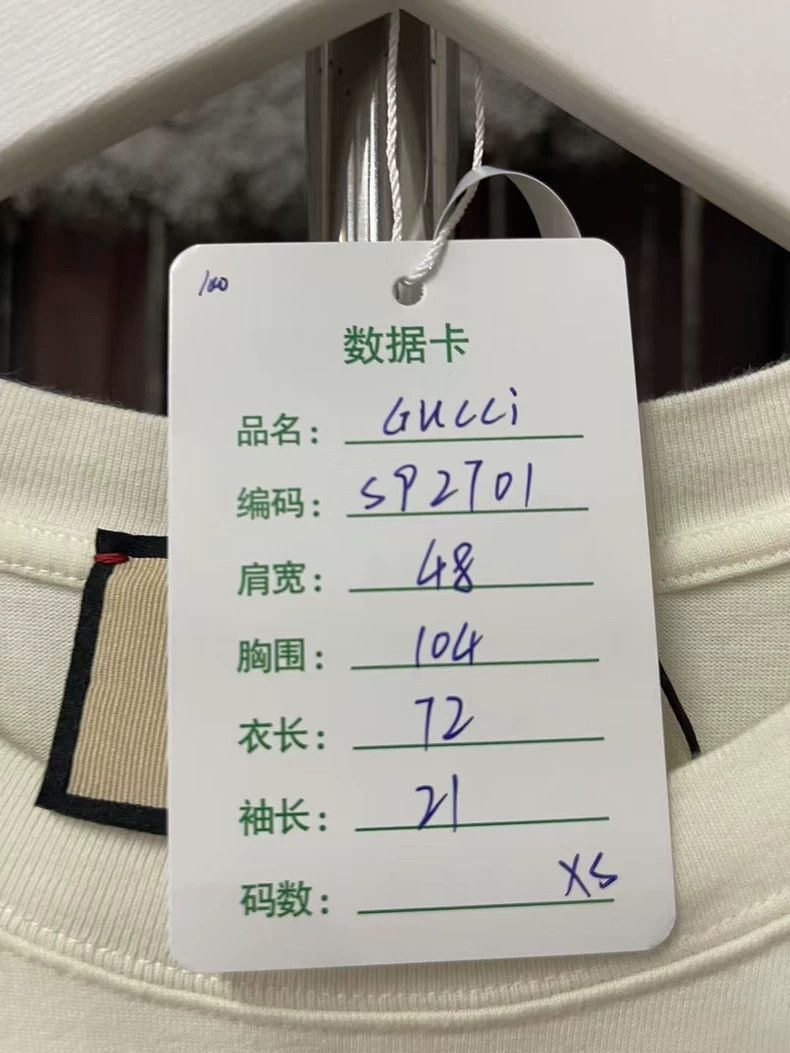 100
数据卡
品名: GUCCi
编码: SP2701
肩宽: 48
胸围: 104
衣长: 72
袖长: 21
码数: XS